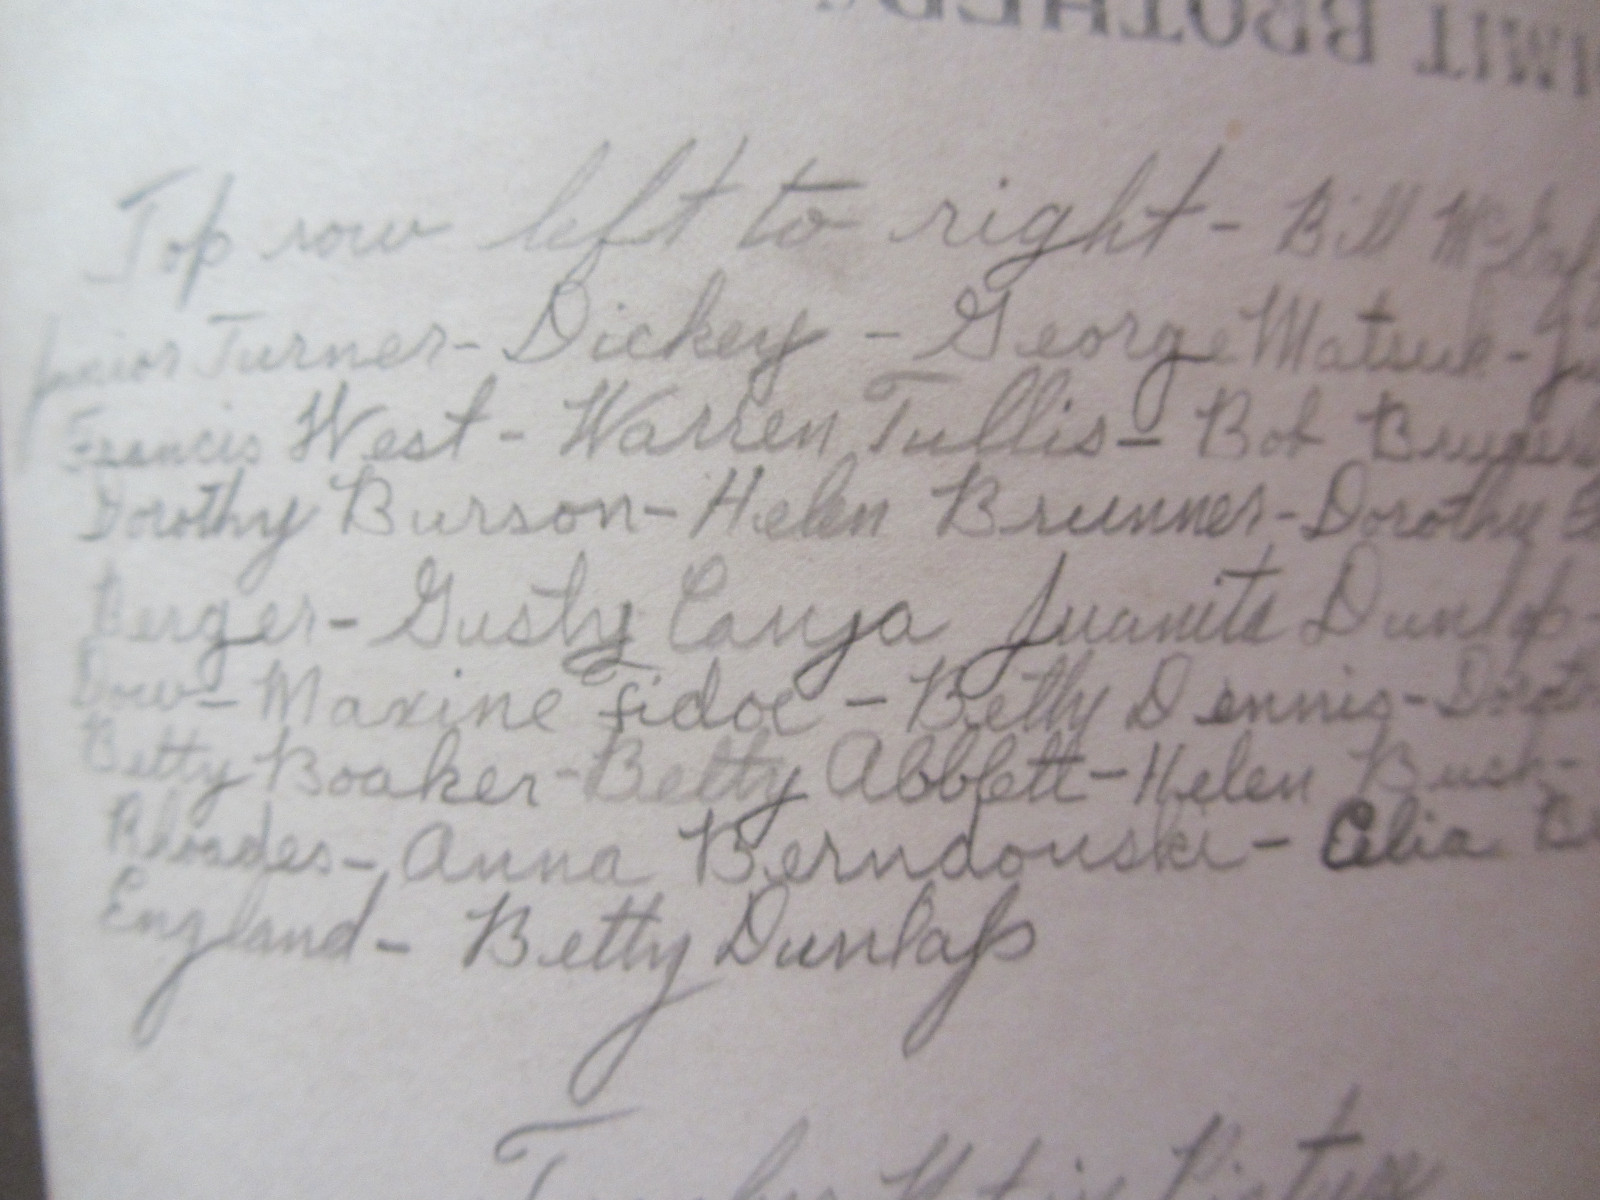 BROTHERS
Top row left to right - Bill
Junior Turner - Dickey - George Matsuk -
Francis West - Warren Tullis - Bob
Dorothy Burson - Helen Brunner - Dorothy
Berger - Gusty Canja Juanita Dunlop -
Dow - Maxine Fidoe - Betty Dennis -
Betty Boaker - Betty Abblett - Helen Buck -
Rhoades - Anna Berndouski - Celia
England - Betty Dunlap
Not in Picture